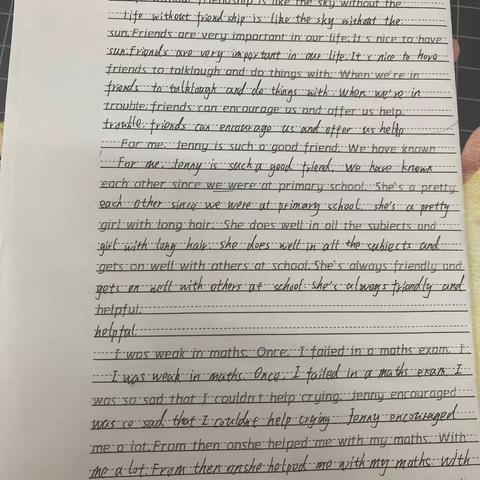 without friendship is like the sky without the
life without friendship is like the sky without the
sun.Friends are very important in our life.It s nice to have
sun.Friends are very important in our life.It s nice to have
friends to talklaugh and do things with. When we're in
friends to talklaugh and do things with. When we're in
trouble.friends can encourage us and offer us help.
trouble. friends can encourage us and offer us hellp
For me. Jenny is such a good friend. We have known
For me. Jenny is such a good friend. We have known
each other since we were at primary school. She's a pretty
each other since we were at primary school. she's a pretty
girl with long hair. She does well in all the subiects and
girl with long hair. she does well in all the subiects and
gets on well with others at school.She's always friendly and
gets on well with others at school.she's always friendly and
helpful.
helpful.
I was weak in maths. Once. I failed in a maths exam. I
I was weak in maths. Once. I failed in a maths exam. I
was so sad that I couldn't help crying. Jenny encouraged
was so sad that I couldn't help crying Jenny encouraged
me a lot.From then onshe helped me with my maths. With
me a lot.From then onshe helped me with my maths. With